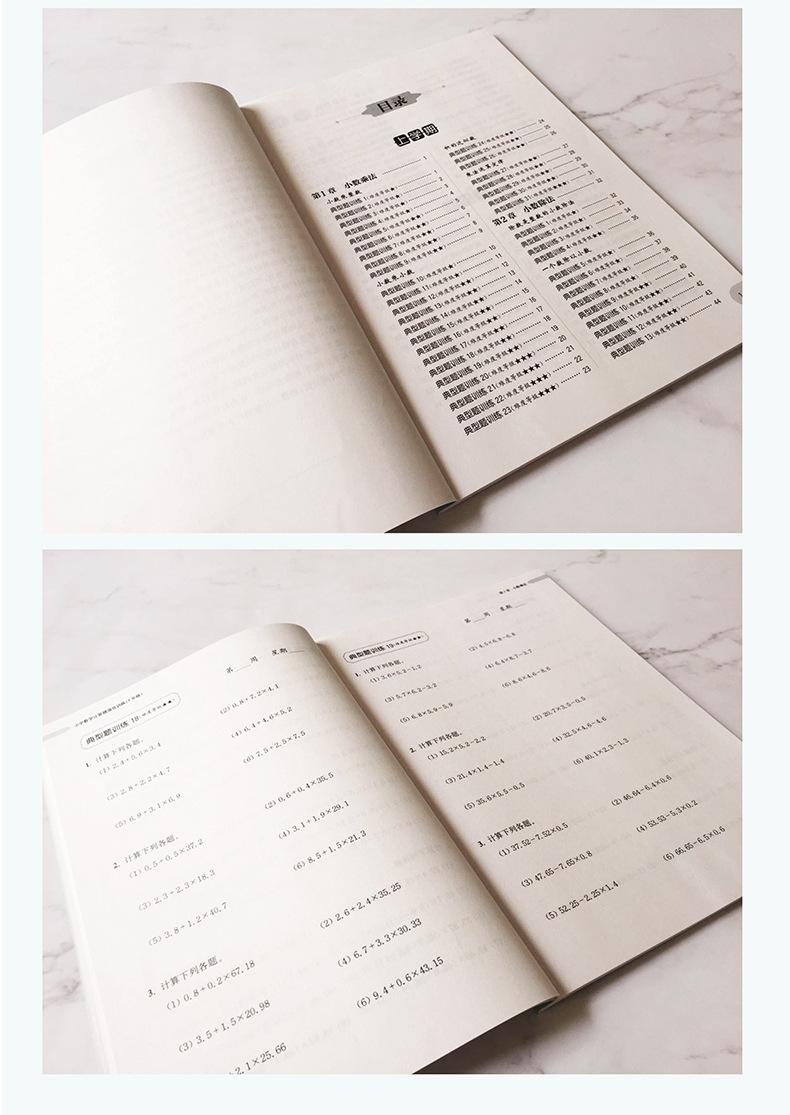 目录
上学期
第1章 小数乘法 1
小数乘整数 1
典型题训练 1(难度等级★)
典型题训练 2(难度等级★) 2
典型题训练 3(难度等级★) 3
典型题训练 4
典型题训练 5 5
典型题训练 6 6
典型题训练 7 7
典型题训练 8 8
典型题训练 9 9
小数乘小数 10
典型题训练 10(难度等级★) 10
典型题训练 11(难度等级★) 11
典型题训练 12(难度等级★★) 12
典型题训练 13(难度等级★★) 13
典型题训练 14(难度等级★★) 14
典型题训练 15(难度等级★★) 15
典型题训练 16(难度等级★★) 16
典型题训练 17(难度等级★★) 17
典型题训练 18(难度等级★★) 18
典型题训练 19(难度等级★★) 19
典型题训练 20(难度等级★★★) 20
典型题训练 21(难度等级★★★) 21
典型题训练 22(难度等级★★★) 22
典型题训练 23(难度等级★★★) 23
积的近似数 24
典型题训练 24 24
典型题训练 25 25
典型题训练 26 26
乘法运算定律 27
典型题训练 27 27
典型题训练 28 28
典型题训练 29 29
典型题训练 30 30
典型题训练 31 31
第2章 小数除法 32
除数是整数的小数除法 32
典型题训练 1 32
典型题训练 2 33
典型题训练 3 34
典型题训练 4 35
一个数除以小数 36
典型题训练 5 36
典型题训练 6 37
典型题训练 7 38
典型题训练 8 39
典型题训练 9(难度等级★★) 40
典型题训练 10(难度等级★★) 41
典型题训练 11(难度等级★★) 42
典型题训练 12(难度等级★★) 43
典型题训练 13(难度等级★★) 44
典型题训练 18(难度等级★★)
第 周 星期
1. 计算下列各题。
(1) 2.4+5.6×3.4
(2) 0.8+7.2×4.1
(3) 2.8+2.2×4.7
(4) 6.4+4.6×5.2
(5) 6.9+3.1×6.9
(6) 7.5+2.5×7.5
2. 计算下列各题。
(1) 0.5+0.5×37.2
(2) 0.6+0.4×35.5
(3) 2.3+2.3×18.3
(4) 3.1+1.9×29.1
(5) 3.8+1.2×40.7
(6) 8.5+1.5×21.3
3. 计算下列各题。
(1) 0.8+0.2×67.18
(2) 2.6+2.4×35.25
(3) 3.5+1.5×20.98
(4) 6.7+3.3×30.33
2.1×25.66
(6) 9.4+0.6×43.15
典型题训练 19(难度等级★★)
第 周 星期
1. 计算下列各题。
(1) 3.6×5.2-1.2
(2) 4.5×6.8-6.8
(3) 5.7×6.2-3.2
(4) 6.4×8.7-3.7
(5) 6.8×5.9-5.9
(6) 8.6×4.6-8.6
2. 计算下列各题。
(1) 15.2×5.2-2.2
(2) 20.7×3.5-0.5
(3) 21.4×1.4-1.4
(4) 32.5×4.6-4.6
(5) 35.6×5.5-0.5
(6) 40.1×2.3-1.3
3. 计算下列各题。
(1) 37.52-7.52×0.5
(2) 46.64-6.4×0.6
(3) 47.65-7.65×0.8
(4) 53.53-5.3×0.2
(5) 52.25-2.25×1.4
(6) 66.65-6.5×0.6